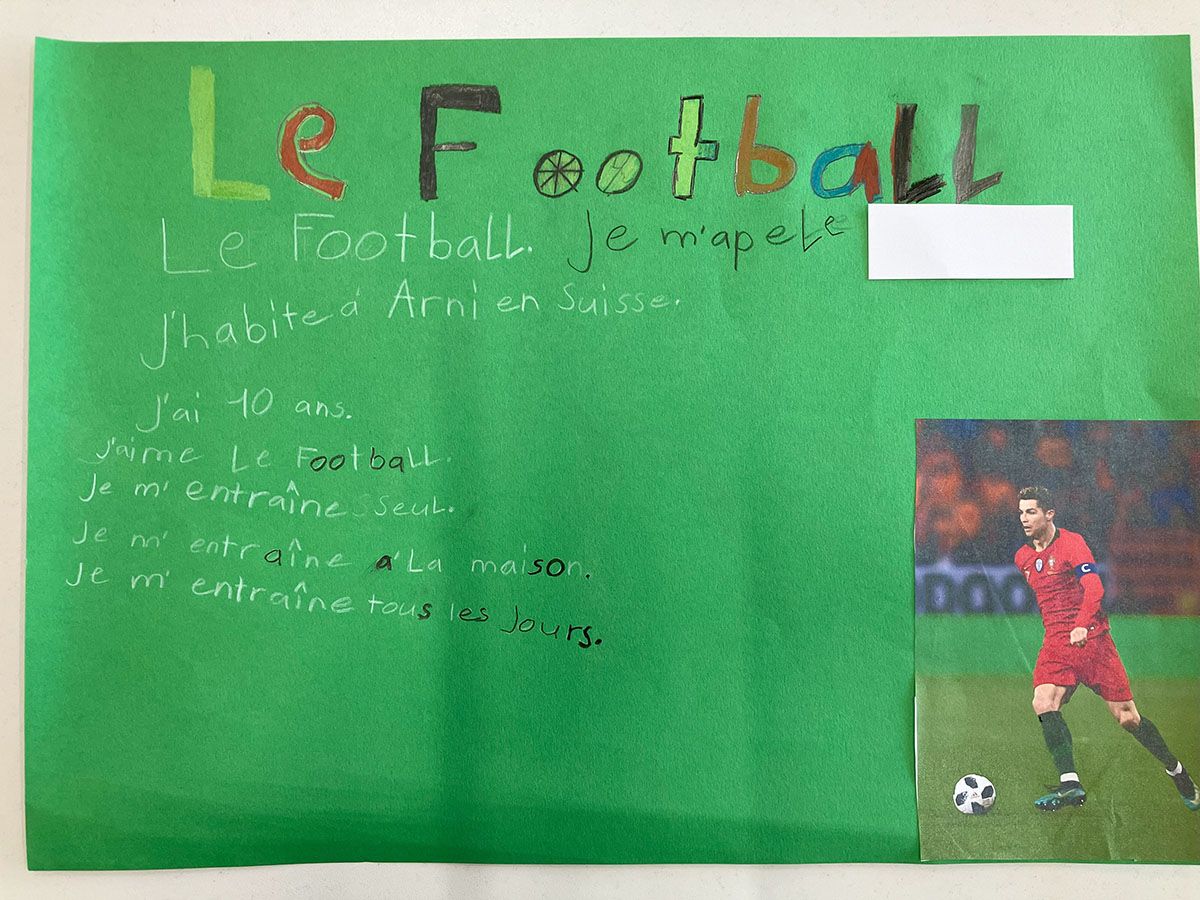 Le Football
Le Football. Je m'apele
J'habite á Arni en Suisse.
J'ai 10 ans.
J'aime Le Football.
Je m'entraîne seul.
Je m'entraîne á La maison.
Je m'entraîne tous les Jours.
C